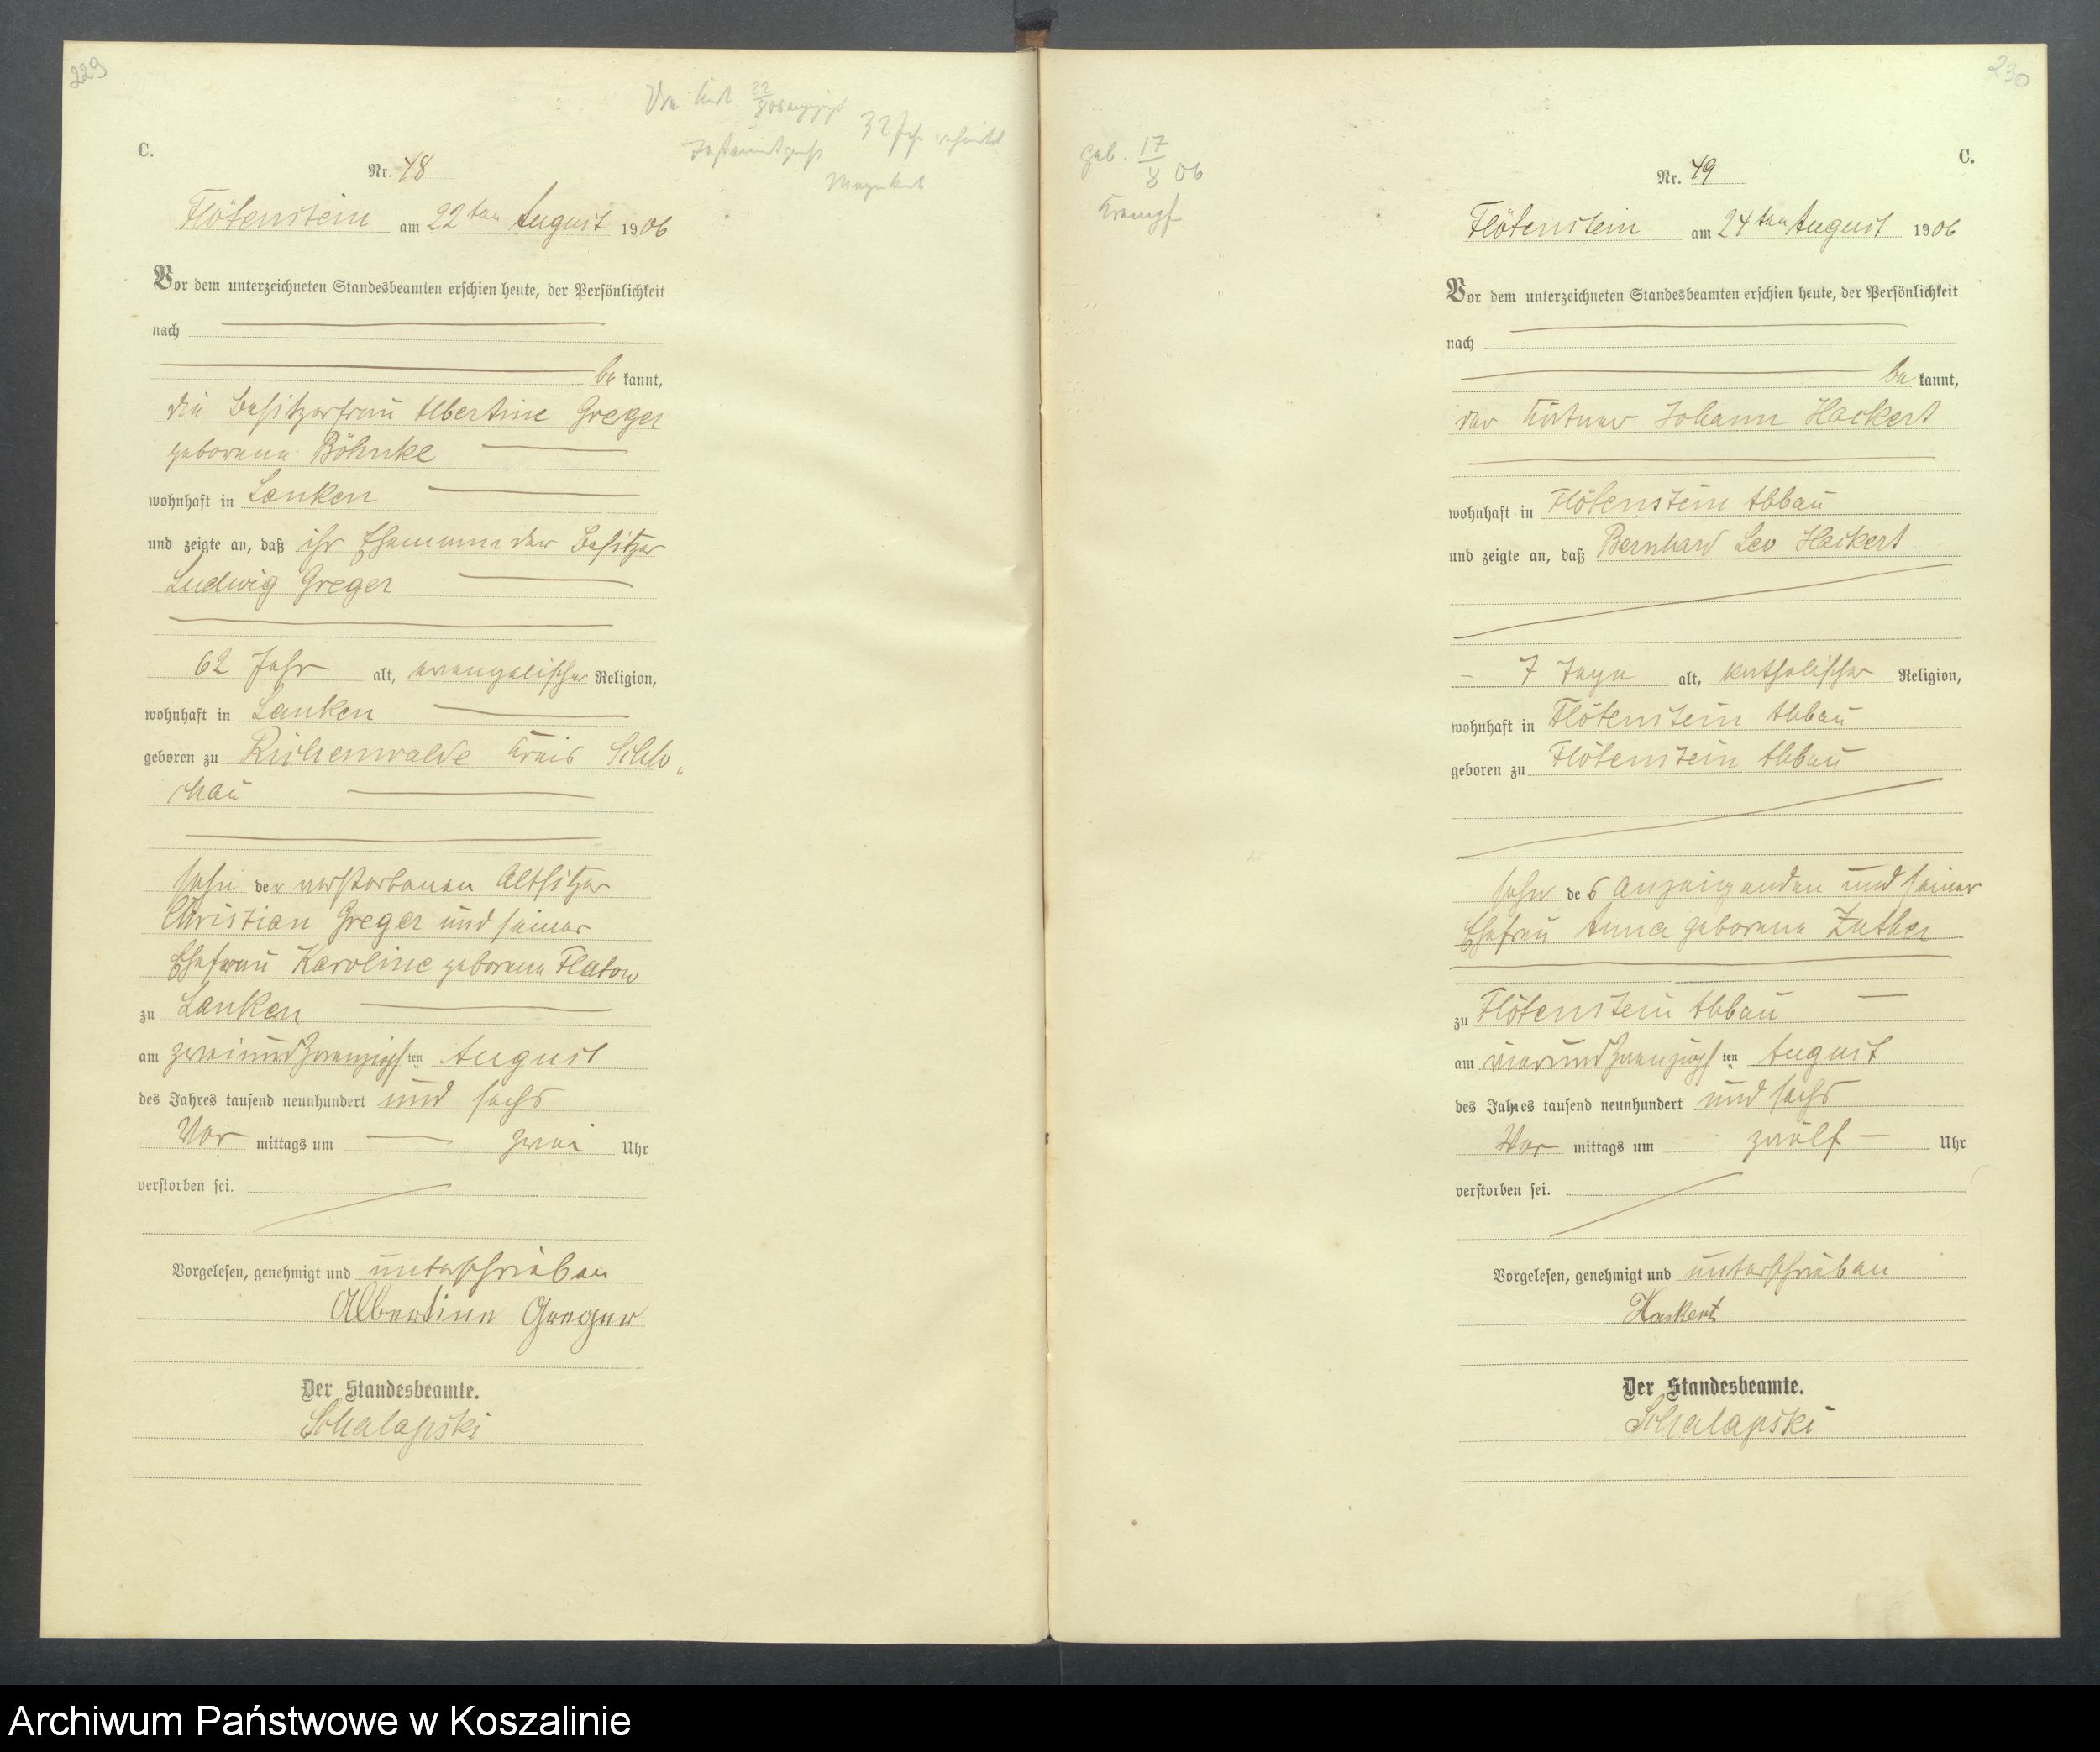 229
22
32 Jahr
C.
Nr. 48
Flötenstein am 22ten August 1906
Vor dem unterzeichneten Standesbeamten erschien heute, der Persönlichkeit
nach
be kannt,
die Besitzerfrau Albertine Greger
geborene Böhnke
wohnhaft in Lanken
und zeigte an, daß ihr Ehemann der Besitzer
Ludwig Greger
62 Jahr alt, evangelischer Religion,
wohnhaft in Lanken
geboren zu Kreis Schlo„
chau
Sohn der verstorbenen Altsitzer
Christian Greger und seiner
Ehefrau Karoline geborene Flatow
zu Lanken
am zweiundzwanzigsten August
des Jahres tausend neunhundert und sechs
Vor mittags um zwei Uhr
verstorben sei.
Vorgelesen, genehmigt und unterschrieben
Albertine Greger
Der Standesbeamte.
Schalapski
230
geb. 17/8 06
Krampf
C.
Nr. 49
Flötenstein am 24ten August 1906
Vor dem unterzeichneten Standesbeamten erschien heute, der Persönlichkeit
nach
be kannt,
der Johann Hackert
wohnhaft in Flötenstein Abbau
und zeigte an, daß Bernhard Leo Hackert
7 Tage alt, katholischer Religion,
wohnhaft in Flötenstein Abbau
geboren zu Flötenstein Abbau
Sohn des Anzeigenden und seiner
Ehefrau Anna geborene Zuther
zu Flötenstein Abbau
am vierundzwanzigsten August
des Jahres tausend neunhundert und sechs
Vor mittags um zwölf Uhr
verstorben sei.
Vorgelesen, genehmigt und unterschrieben
Hackert
Der Standesbeamte.
Schalapski
Archiwum Państwowe w Koszalinie